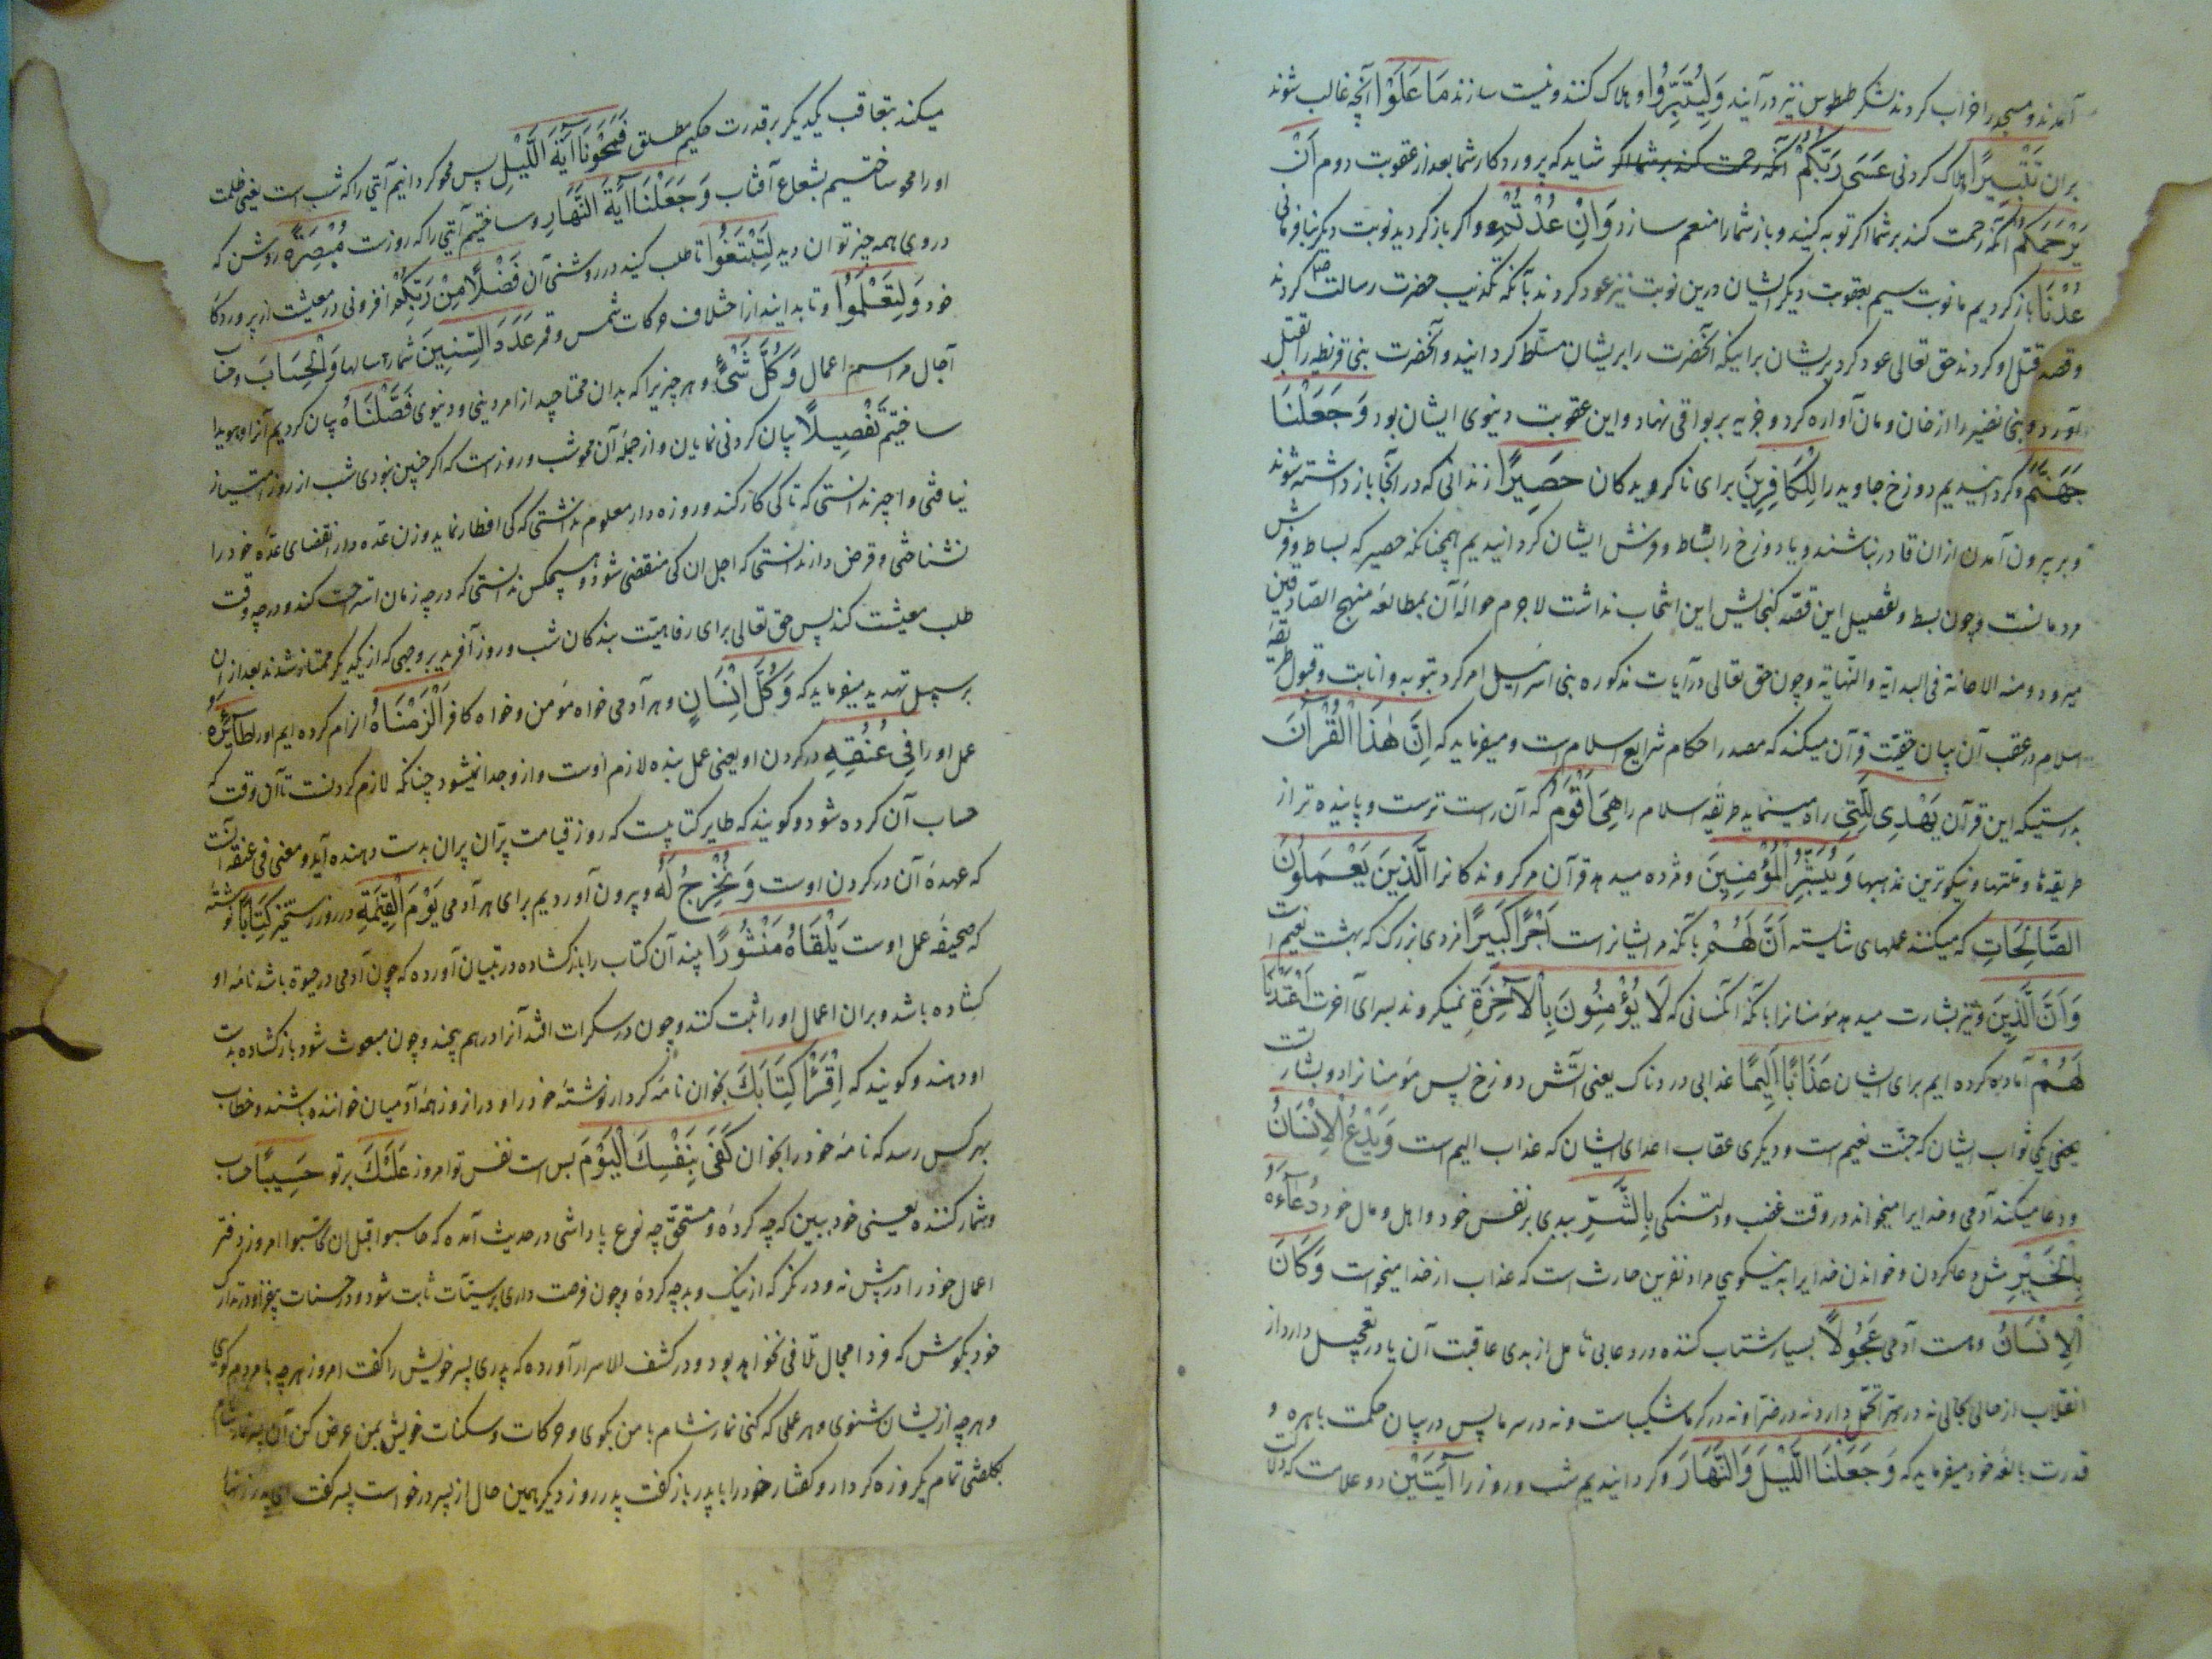 آمدند و مسجد را خراب کردند لشکر طیطوس نیز درآیند وَلِيُتَبِّرُوا و هلاک کنند و نیست سازند مَا عَلَوْا آنچه غالب شوند
بران تَتْبِيرًا هلاک کردنی عَسَى رَبُّكُمْ آنکه رحمت کند بر شما اکر شاید که پروردکار شما بعد از عقوبت دوم اَنْ
يَرْحَمَكُمْ آنکه رحمت کند بر شما اکر توبه کنید و باز شما را منعم سازد وَاِنْ عُدْتُمْ و اکر باز کردید نوبت دیکر بنافرمانی
عُدْنَا باز کردیم ما نوبت سیم بعقوبت دیکر ایشان درین نوبت نیز عود کردند بآنکه تکذیب حضرت رسالت کردند
و قصد قتل او کردند حق تعالی عود کرد بریشان براینکه آنحضرت را بریشان مسلّط کردانید و آنحضرت بنی قریظه را بقتل
آورد و بنی نضیر را از خان و مان آواره کرد و جزیه بر بواقی نهاد و این عقوبت دنیوی ایشان بود وَجَعَلْنَا
جَهَنَّمَ و کردانیدیم دوزخ جاوید را لِلْكَافِرِينَ برای ناکرویدکان حَصِيرًا زندانی که در آنجا بازداشته شوند
و بر بیرون آمدن از ان قادر نباشند و یا دوزخ را بساط و فرش ایشان کردانیدیم همچنانکه حصیر که بساط و فرش
مردمانست و چون بسط و تفصیل این قصّه کنجایش این انتخاب نداشت لاجرم حواله آن بمطالعه منهج الصّادقین
میرود و منه الاعانة فی البدایة و النّهایة و چون حق تعالی در آیات مذکوره بنی اسرائیل امر کرد بتوبه و انابت و قبول طریقه
اسلام در عقب آن بیان حقیّت قرآن میکند که مصدر احکام شرایع اسلام است و میفرماید که اِنَّ هٰذَا الْقُرْآنَ
بدرستیکه این قرآن يَهْدِي لِلَّتِي راه مینماید طریقه اسلام را هِيَ اَقْوَمُ که آن راست ترست و پاینده تر از
طریقه‌ها و ملّتها و نیکوترین مذهبها وَيُبَشِّرُ الْمُؤْمِنِينَ و مژده میدهد قرآن مر کروندکانرا الَّذِينَ يَعْمَلُونَ
الصَّالِحَاتِ که میکنند عملهای شایسته اَنَّ لَهُمْ بآنکه مر ایشانراست اَجْرًا كَبِيرًا مزدی بزرک که بهشت نعیم است
وَاَنَّ الَّذِينَ و نیز بشارت میدهد مؤمنانرا بآنکه آنکسانی که لَا يُؤْمِنُونَ بِالْآخِرَةِ نمیکروند بسرای آخرت اَعْتَدْنَا
لَهُمْ آماده کرده ایم برای ایشان عَذَابًا اَلِيمًا عذابی دردناک یعنی آتش دوزخ پس مؤمنانرا دو بشارت
یعنی یکی ثواب ایشان که جنّت نعیم است و دیکری عقاب اعدای ایشان که عذاب الیم است وَيَدْعُ الْاِنْسَانُ
و دعا میکند آدمی و خدایرا میخواند در وقت غضب و دلتنکی بِالشَّرِّ ببدی بر نفس خود و اهل و مال خود دُعَاءَهُ
بِالْخَيْرِ مثل دعا کردن و خواندن خدایرا به نیکویی مراد نفرین حارث است که عذاب از خدا میخواست وَكَانَ
الْاِنْسَانُ و هست آدمی عَجُولًا بسیار شتاب کننده در دعا بی تامل از بدی عاقبت آن یا در تعجیل دارد از
انقلاب از حالی بحالی نه در سرّا تحمّل دارد نه در ضرّا و نه در کرما شکیباست و نه در سرما پس در بیان حکمت باهره و
قدرت بالغه خود میفرماید که وَجَعَلْنَا اللَّيْلَ وَالنَّهَارَ و کردانیدیم شب و روز را آيَتَيْنِ دو علامت که دلالت
میکند بتعاقب یکدیکر بر قدرت حکیم مطلق فَمَحَوْنَا آيَةَ اللَّيْلِ پس محو کردانیم آیتی را که شب است یعنی ظلمت
او را محو ساختیم بشعاع آفتاب وَجَعَلْنَا آيَةَ النَّهَارِ و ساختیم آیتی را که روزست مُبْصِرَةً روشن که
در وی همه چیز توان دید لِتَبْتَغُوا تا طلب کنید در روشنی آن فَضْلًا مِنْ رَبِّكُمْ افزونی در معیشت از پروردکار
خود وَلِتَعْلَمُوا و تا بدانید از اختلاف حرکات شمس و قمر عَدَدَ السِّنِينَ شمار سالها وَالْحِسَابَ و حساب
آجال مواسم اعمال وَكُلَّ شَيْءٍ و هر چیزیرا که بدان محتاجید از امر دینی و دنیوی فَصَّلْنَاهُ بیان کردیم آنرا و هویدا
ساختیم تَفْصِيلًا بیان کردنی نمایان و از جمله آن محو شب و روز است که اکر چنین نبودی شب از روز امتیاز
نیافتی و اجیر ندانستی که تا کی کار کند و روزه دار معلوم نداشتی که کی افطار نماید و زن عدّه دار انقضای عدّه خود را
نشناختی و قرض دار ندانستی که اجل ان کی منقضی شود و هیچکس ندانستی که در چه زمان استراحت کند و در چه وقت
طلب معیشت کند پس حق تعالی برای رفاهیّت بندکان شب و روز آفرید بر وجهی که از یکدیکر ممتاز شدند بعد از ان
بر سبیل تهدید میفرماید که وَكُلَّ اِنْسَانٍ و هر آدمی خواه مؤمن و خواه کافر اَلْزَمْنَاهُ الزام کرده ایم او را طَائِرَهُ
عمل او را فِي عُنُقِهِ در کردن او یعنی عمل بنده لازم اوست و از و جدا نمیشود چنانکه لازم کردنست تا آن وقت که
حساب آن کرده شود و کویند که طایر کتابیست که روز قیامت پرّان پران بدست دهنده آید و معنی فی عنقه آنست
که عهده آن در کردن اوست وَنُخْرِجُ لَهُ و بیرون آوردیم برای هر آدمی يَوْمَ الْقِيٰمَةِ در روز رستخیز كِتَابًا نوشته
که صحیفه عمل اوست يَلْقَاهُ مَنْشُورًا بیند آن کتاب را باز کشاده در تبیان آورده که چون آدمی در حیوة باشد نامه او
کشاده باشد و بران اعمال او را ثبت کنند و چون در سکرات افتد آنرا درهم پیچند و چون مبعوث شود باز کشاده بدست
او دهند و کویند که اِقْرَأْ كِتَابَكَ بخوان نامه کردار نوشته خود را و در انروز همه آدمیان خواننده باشند و خطاب
بهر کس رسد که نامه خود را بخوان كَفَى بِنَفْسِكَ الْيَوْمَ بس است نفس تو امروز عَلَيْكَ بر تو حَسِيبًا حساب
و شمار کننده یعنی خود ببین که چه کرده و مستحقّ چه نوع پاداشی در حدیث آمده که حاسبوا قبل ان تحاسبوا امروز دفتر
اعمال خود را در پیش نه و در نکر که از نیک و بد چه کرده و چون فرصت داری بر سیّئات ثابت شود و در حسنات بیفزا و در تدارک
خود بکوش که فردا مجال تلافی نخواهد بود و در کشف الاسرار آورده که پدری پسر خویش را کفت امروز هر چه با مردم کویی
و هر چه از یشان شنوی و هر عملی که کنی نماز شام با من بکوی و حرکات و سکنات خویش بمن عرض کن آن پسر نماز شام
بکلفتی تمام یکروزه کردار و کفتار خود را با پدر باز کفت پدر روز دیکر همین حال از پسر درخواست پسر کفت ای پدر زینهار